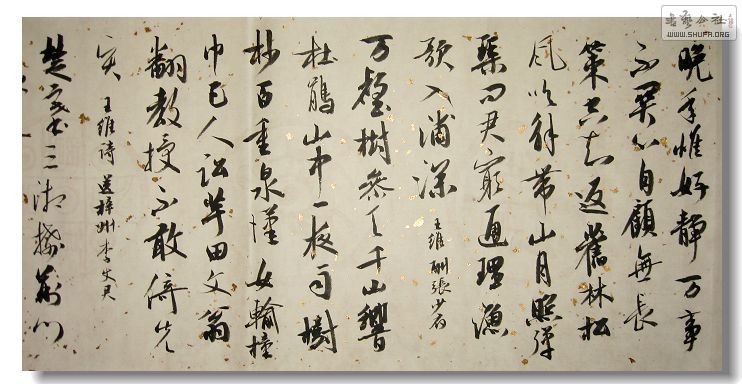 晚年惟好靜万事
不関心自顧無長
策空知返舊林松
風吹解带山月照彈
琴问君窮通理漁
歌入浦深 王維酬張少府
万壑樹参天千山響
杜鵑山中一夜雨樹
杪百重泉漢女輸橦
巾巴人訟芋田文翁
翻教授不敢倚先
贤 王維詩 送梓州李使君
楚塞三湘接荆门
书艺公社
WWW.SHUFA.ORG